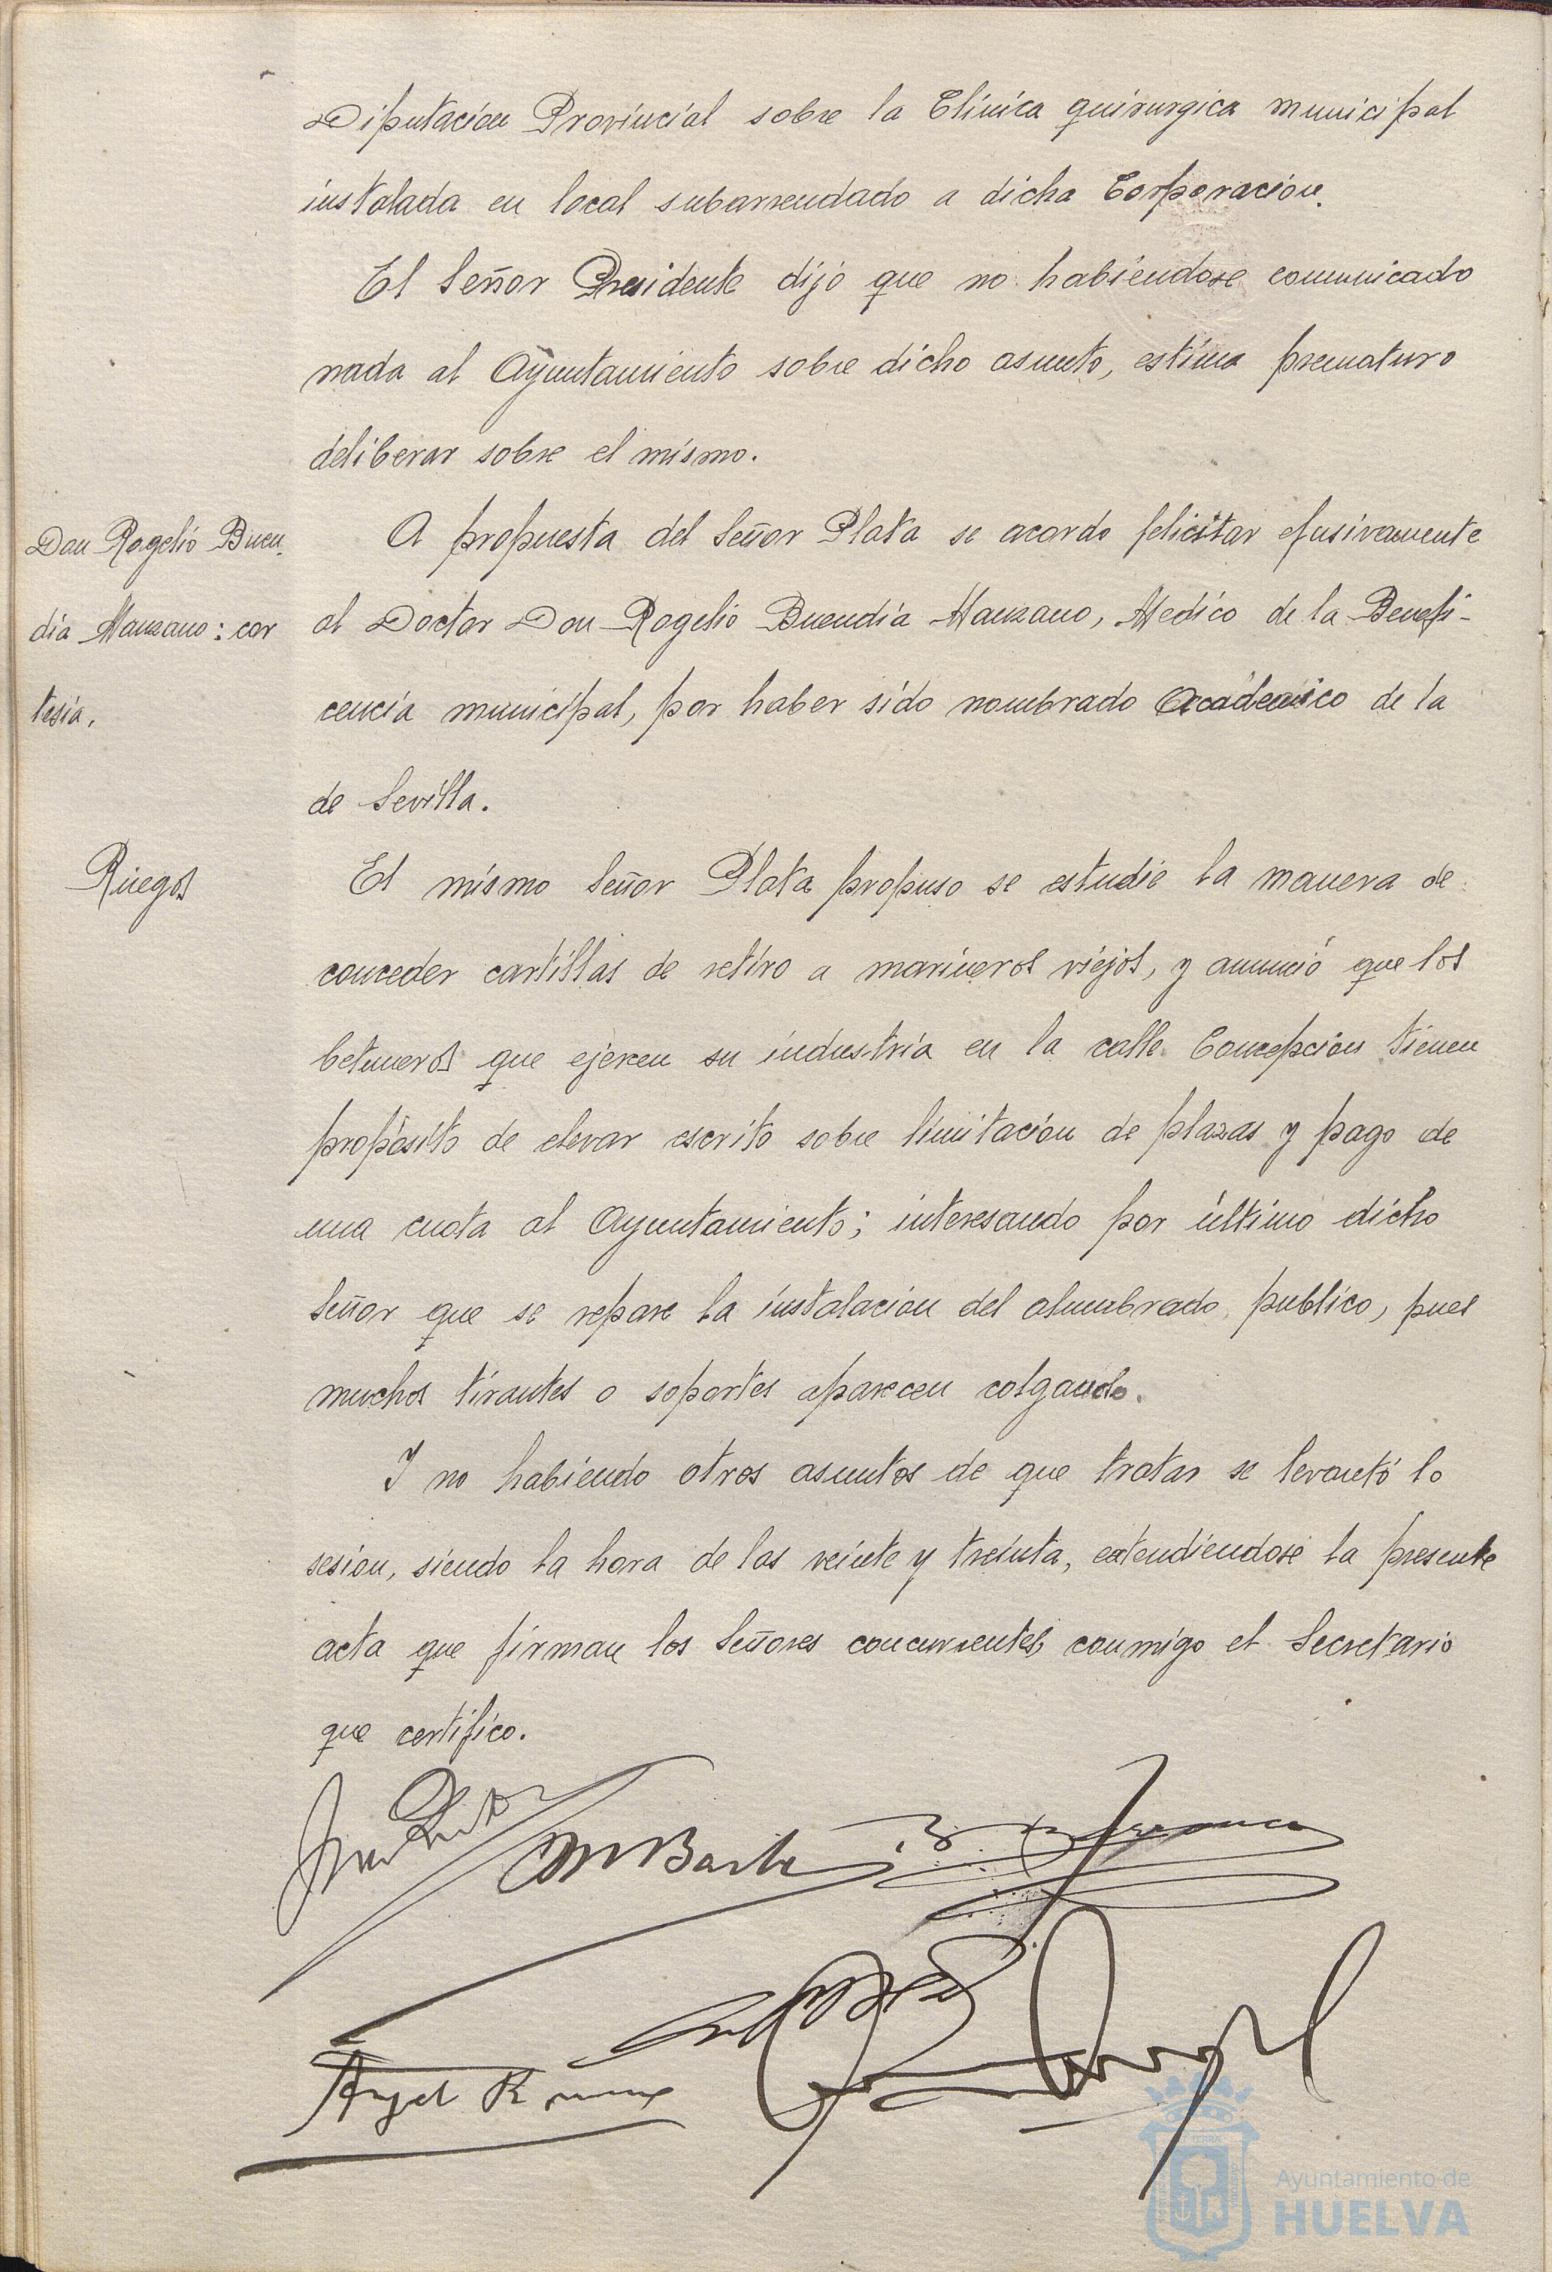 Diputacion Provincial sobre la Clínica quirurgica municipal
instalada en local subarrendado a dicha Corporación.
El Señor Presidente dijo que no habiendose comunicado
nada al Ayuntamiento sobre dicho asunto, estima prematuro
deliberar sobre el mismo.
Don Rogelio Buen-
dia Manzano: cor
tesia.
A propuesta del Señor Plata se acordo felicitar efusivamente
al Doctor Don Rogelio Buendia Manzano, Medico de la Benefi-
cencia municipal, por haber sido nombrado Académico de la
de Sevilla.
Ruegos
El mismo Señor Plata propuso se estudie la manera de
conceder cartillas de retiro a marineros viejos, y anunció que los
betuneros que ejercen su industria en la calle Concepcion tienen
propósito de elevar escrito sobre limitacion de plazas y pago de
una cuota al Ayuntamiento; interesando por último dicho
Señor que se repare la instalacion del alumbrado publico, pues
muchos tirantes o soportes aparecen colgando.
Y no habiendo otros asuntos de que tratar se levantó la
sesion, siendo la hora de las veinte y treinta, extendiendose la presente
acta que firman los Señores concurrentes conmigo el Secretario
que certifico.
Angel
Ayuntamiento de
HUELVA